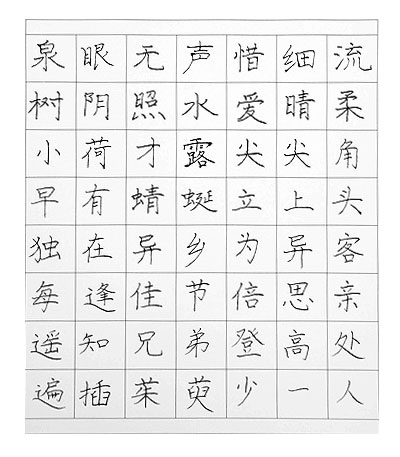 泉眼无声惜细流
树阴照水爱晴柔
小荷才露尖尖角
早有蜻蜓立上头
独在异乡为异客
每逢佳节倍思亲
遥知兄弟登高处
遍插茱萸少一人